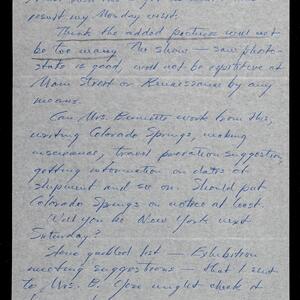 result my Monday visit.
Think the added pictures will not
be too many. The show — saw photo-
stats is good, will not be repetitive at
Main Street or Renaissance by any
means.
Can Mrs. Bennett work from this,
writing Colorado Springs, making
insurance, travel proration suggestion,
getting information on dates of
shipment and so on. Should put
Colorado Springs on notice at least.
Will you be New York next
Saturday?
list — Exhibition
meeting suggestions — that I sent
to Mrs. B. You might check it